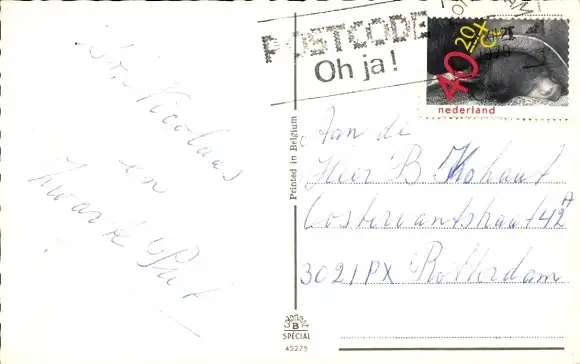 St. Nicolaas
en
Zwarte Piet
POSTCODE
Oh ja!
40 20 ct
1979
nederland
Printed in Belgium
Aan de
Heer B Kohaut
Oostervantstraat 42 A
3021 PX Rotterdam
B
SPECIAL
45275